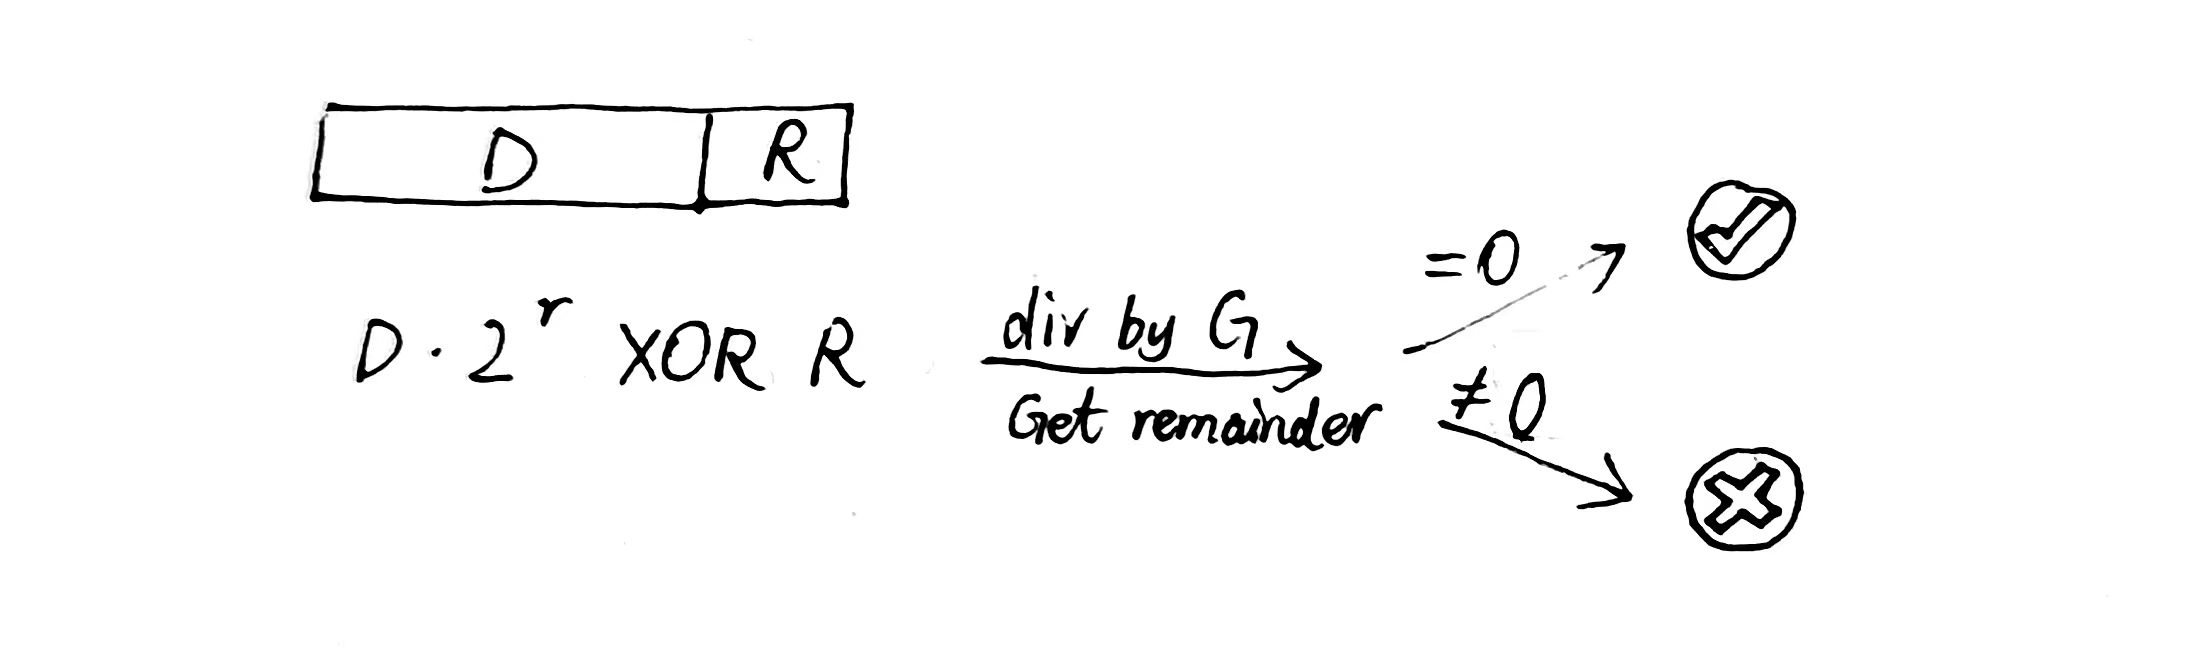 D R
D · 2^r XOR R
div by G
Get remainder
=0
≠0